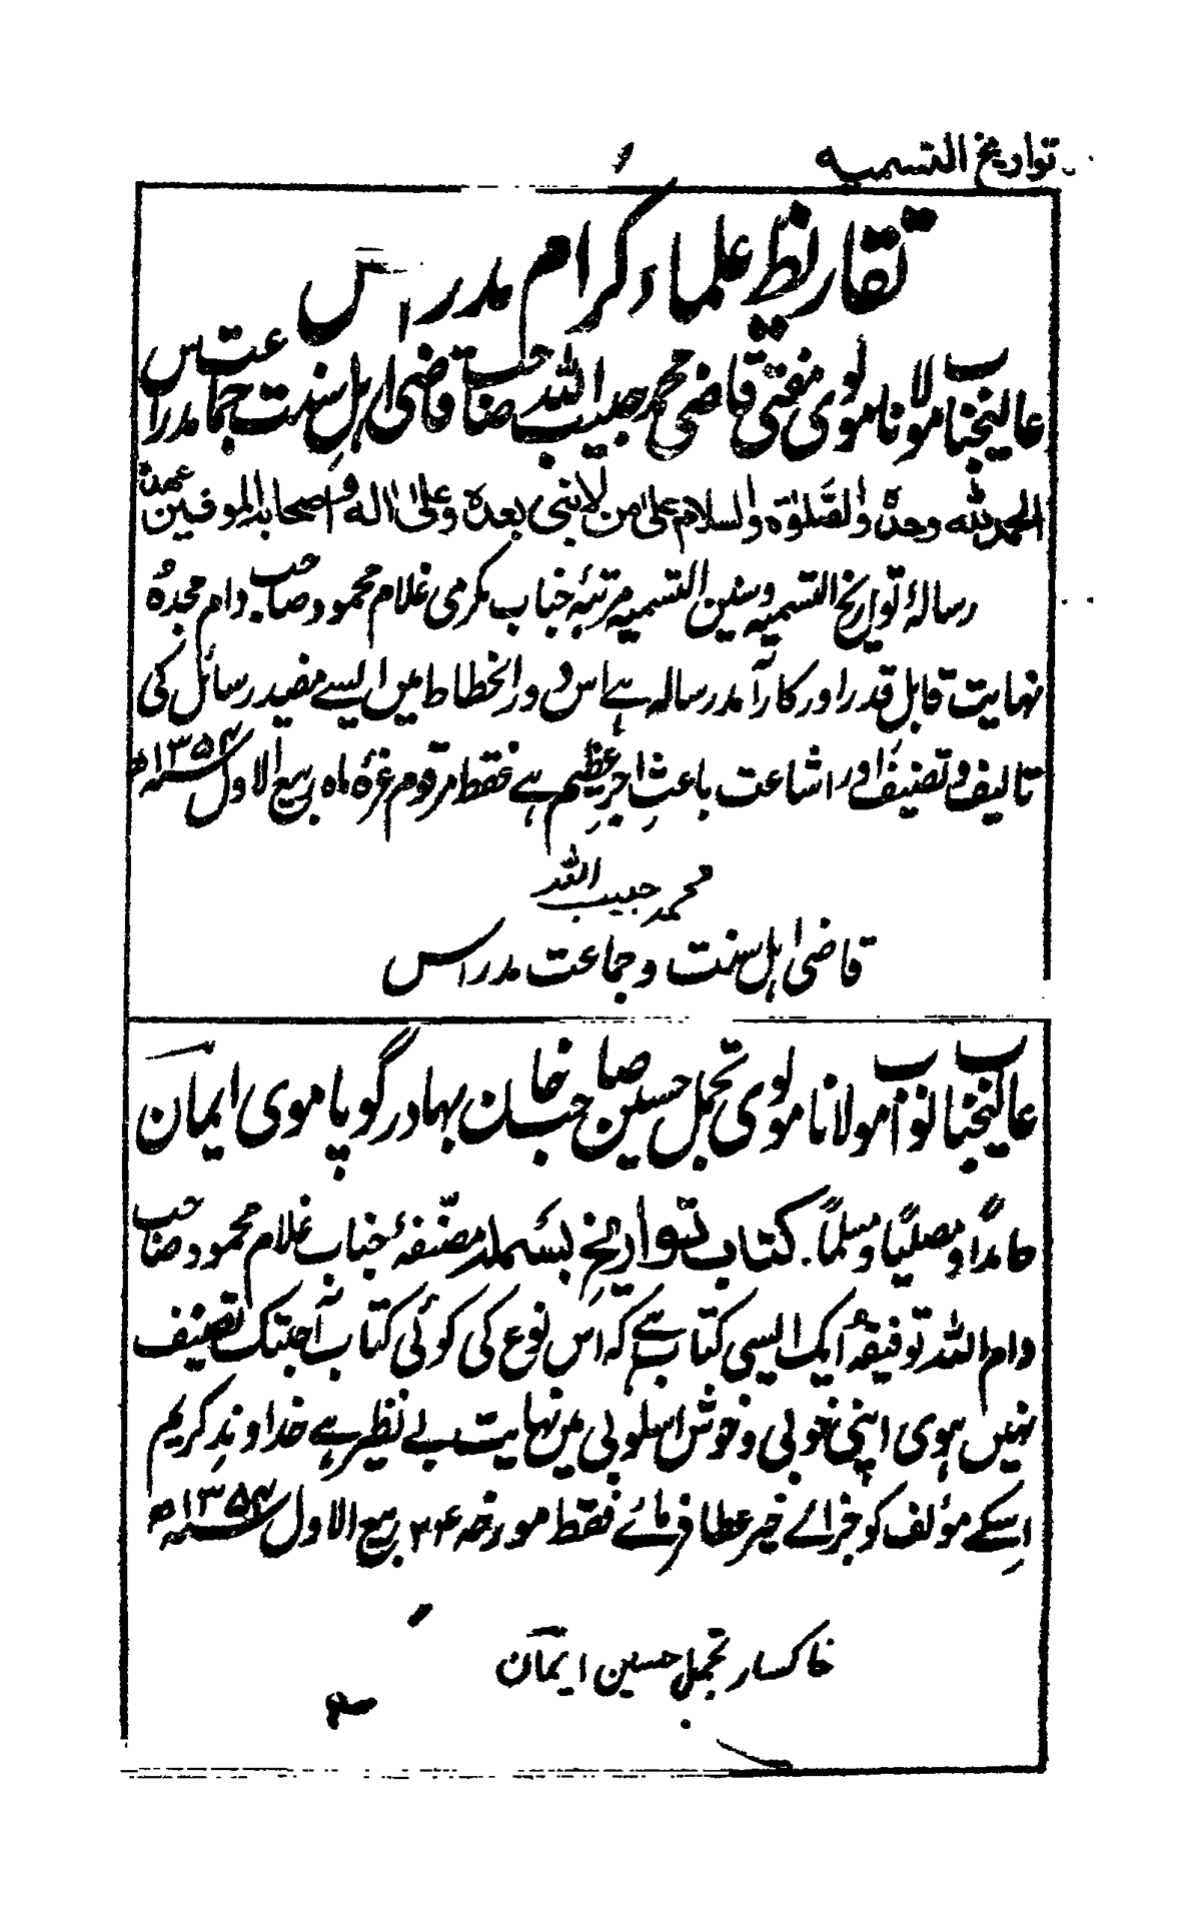 تواریخ التسمیہ
تقاریظ علماء کرام مدراس
عالیجناب مولانا مولوی مفتی قاضی محمد حبیب اللہ صاحب قاضی اہل سنت جماعت مدراس
الحمد للہ وحدہٗ والصلوٰۃ والسلام علیٰ من لا نبی بعدہٗ وعلیٰ اٰلہ واصحابہ الموفین عہدہٗ
رسالۂ تواریخ التسمیہ وسنین التسمیہ مرتبۂ جناب مکرمی غلام محمود صاحب دام مجدہٗ
نہایت قابل قدر اور کارآمد رسالہ ہے اس دور انحطاط میں ایسے مفید رسائل کی
تالیف وتصنیف اور اشاعت باعثِ اجرِ عظیم ہے فقط مرقوم غرۂ ماہ ربیع الاول ۱۳۵۴ھ
محمد حبیب اللہ
قاضی اہل سنت وجماعت مدراس
عالیجناب نواب مولانا مولوی تجمل حسین صاحب خان بہادر گوپاموی ایمان
حامداً و مصلیاً و مسلماً. کتاب تواریخِ بسملہ مصنفۂ جناب غلام محمود صاحب
دام اللہ توفیقہٗ ایک ایسی کتاب ہے کہ اس نوع کی کوئی کتاب آجتک تصنیف
نہیں ہوی اپنی خوبی و خوش اسلوبی میں نہایت بے نظیر ہے خداوندِ کریم
اِسکے مؤلف کو جزائے خیر عطا فرمائے فقط مورخہ ۲۴ ربیع الاول ۱۳۵۴ھ
خاکسار تجمل حسین ایمان